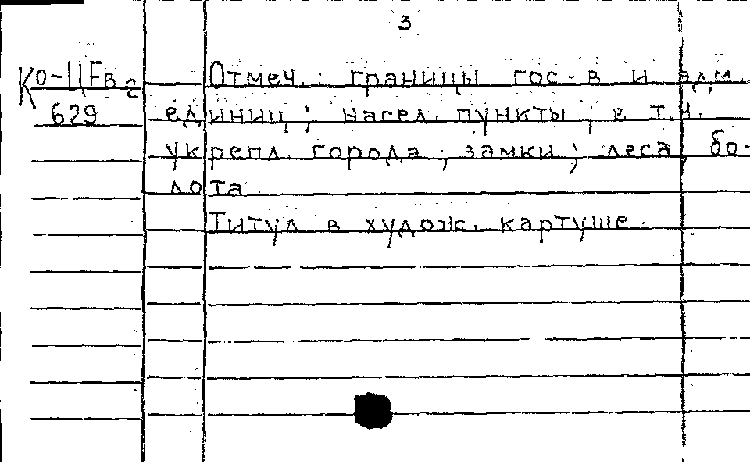 3
Ко-II Fв2 Отмеч. границы гос-в и адм.
629 единиц; насел. пункты, в т.ч.
укрепл. города; замки; леса, бо-
лота
Титул в худож. картуше.